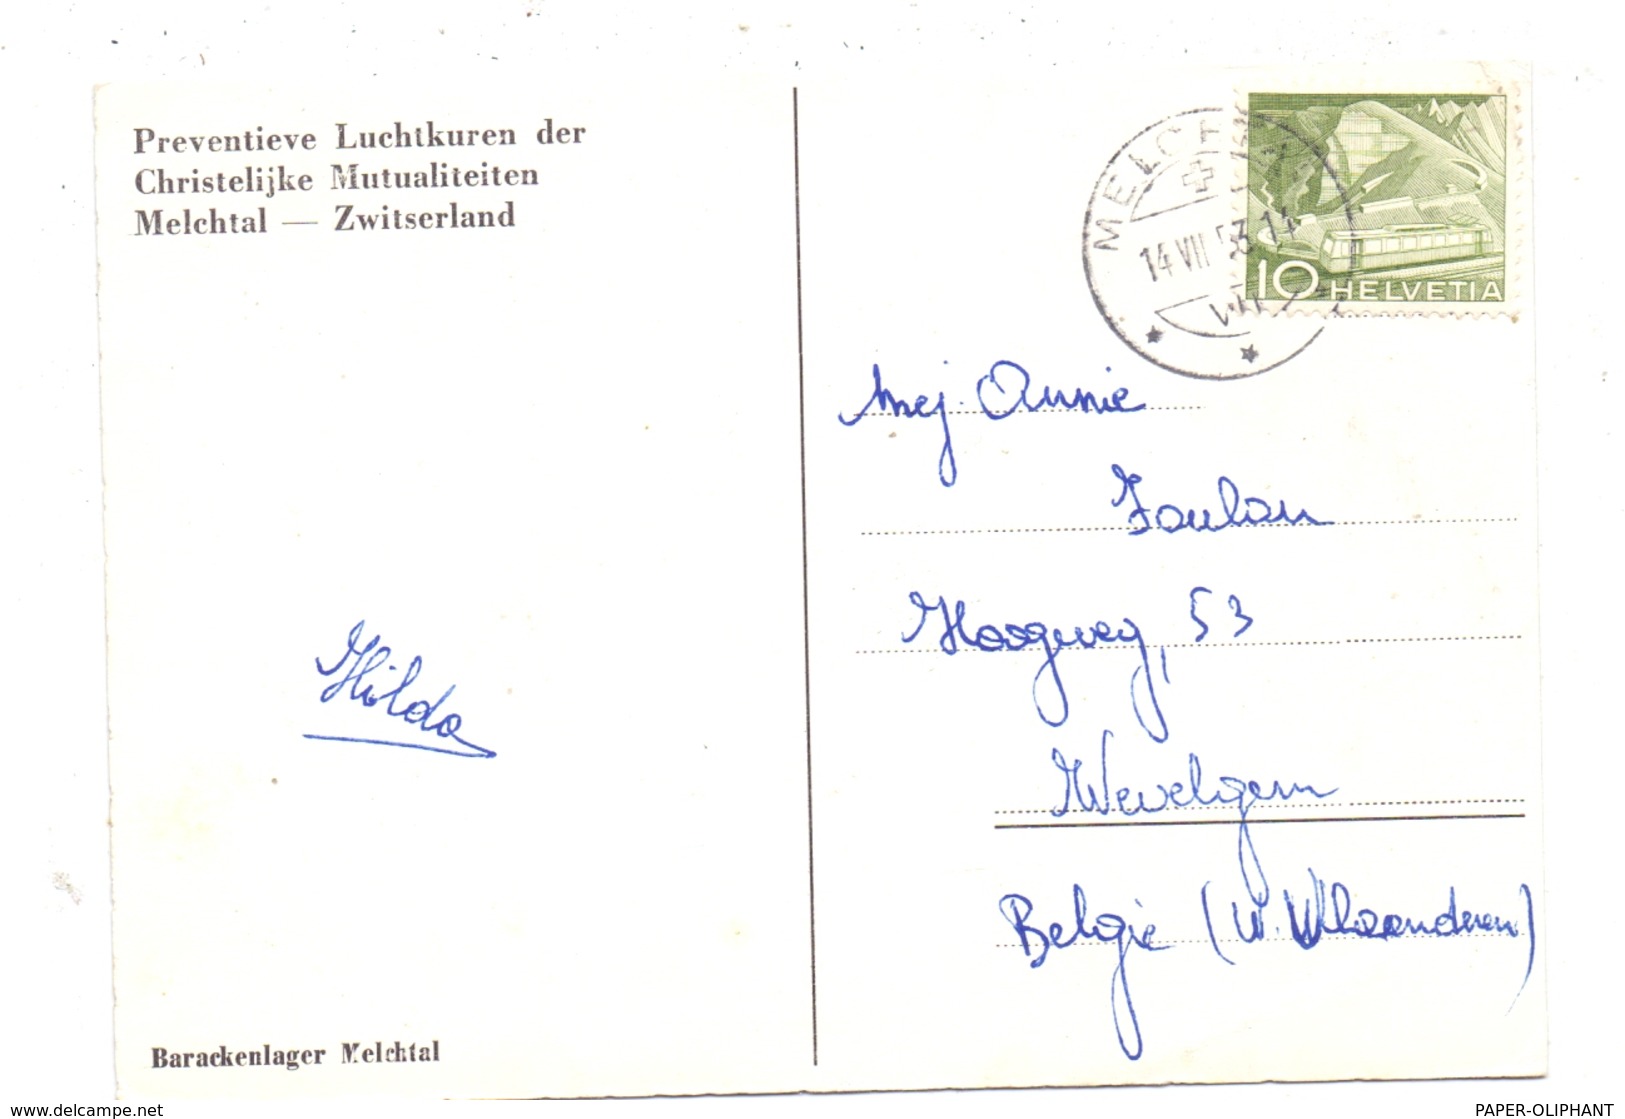 Preventieve Luchtkuren der
Christelijke Mutualiteiten
Melchtal — Zwitserland
Hilda
Barackenlager Melchtal
14 VII 53 14
10 HELVETIA
Mej. Annie
Hoogweg, 53
Wevelgem
België (W. Vlaanderen)
www.delcampe.net
PAPER-OLIPHANT